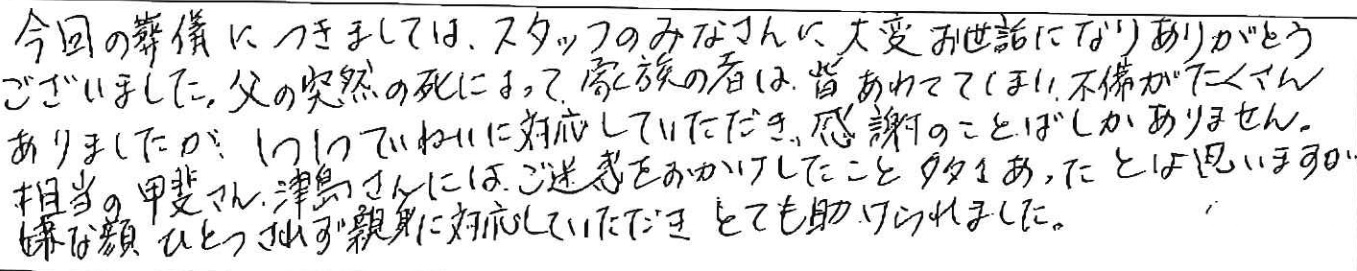 今回の葬儀につきましては、スタッフのみなさんに、大変お世話になりありがとう
ございました。父の突然の死によって、家族の者は、皆あわててしまい、不備がたくさん
ありましたが、1つ1つていねいに対応していただき、感謝のことばしかありません。
担当の甲斐さん、津島さんには、ご迷惑をおかけしたこと多々あったとは思いますが
嫌な顔ひとつされず親身に対応していただき とても助けられました。